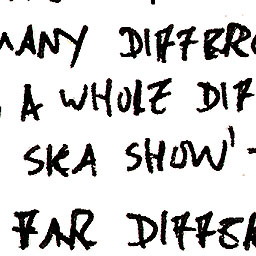 MANY DIFFERE
A WHOLE DIF
SKA SHOW' -
FAR DIFFER